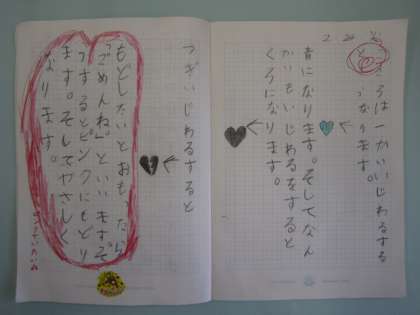 ろは一かいいじわるする
とこうなります。
青になります。そしてなん
かいもいじわるをすると
くろになります。
つぎいじわるすると
もどしたいとおもったら
「ごめんね」といいますそ
うするとピンクにもどり
ます。そしてやさしく
なります。